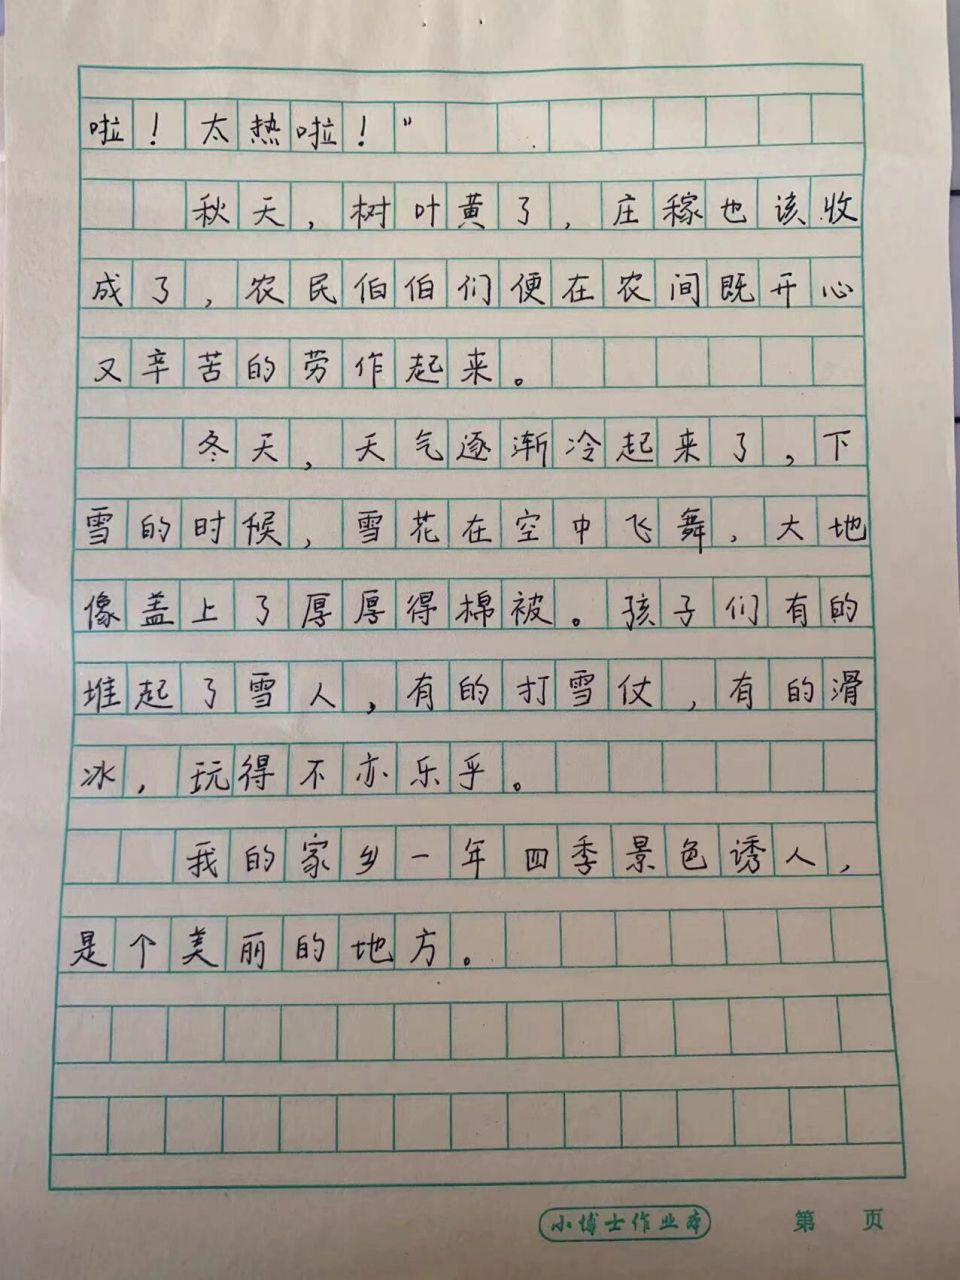 啦！太热啦！”
秋天，树叶黄了，庄稼也该收
成了，农民伯伯们便在农间既开心
又辛苦的劳作起来。
冬天，天气逐渐冷起来了，下
雪的时候，雪花在空中飞舞，大地
像盖上了厚厚得棉被。孩子们有的
堆起了雪人，有的打雪仗，有的滑
冰，玩得不亦乐乎。
我的家乡一年四季景色诱人，
是个美丽的地方。
小博士作业本
第 页